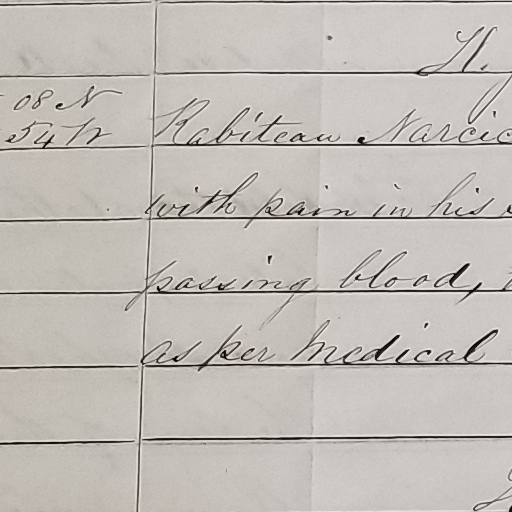 H.
08 N
54 W Rabiteau Narcic
with pain in his
passing blood,
as per Medical